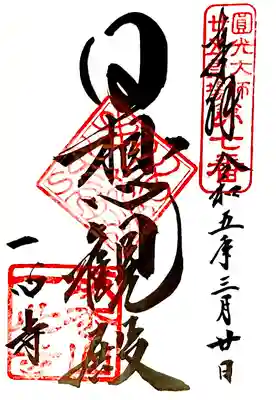 奉拝
令和五年三月廿日
日想観殿
一心寺
圓光大師
廿五霊場
第七番